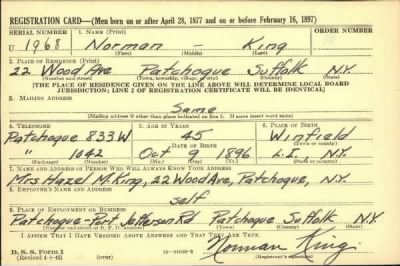 REGISTRATION CARD—(Men born on or after April 28, 1877 and on or before February 16, 1897)
SERIAL NUMBER 1. NAME (Print) ORDER NUMBER
U 1968 Norman – King
(First) (Middle) (Last)
2. PLACE OF RESIDENCE (Print)
22 Wood Ave Patchogue Suffolk N.Y.
(Number and street) (Town, township, village, or city) (County) (State)
[THE PLACE OF RESIDENCE GIVEN ON THE LINE ABOVE WILL DETERMINE LOCAL BOARD
JURISDICTION; LINE 2 OF REGISTRATION CERTIFICATE WILL BE IDENTICAL]
3. MAILING ADDRESS
Same
[Mailing address if other than place indicated on line 2. If same insert word same]
4. TELEPHONE 5. AGE IN YEARS 6. PLACE OF BIRTH
Patchogue 833W 45 Winfield
DATE OF BIRTH (Town or county)
" 1042 Oct 9 1896 L.I. N.Y.
(Exchange) (Number) (Mo.) (Day) (Yr.) (State or country)
7. NAME AND ADDRESS OF PERSON WHO WILL ALWAYS KNOW YOUR ADDRESS
Mrs Hazel M. King, 22 Wood Ave, Patchogue, N.Y.
8. EMPLOYER'S NAME AND ADDRESS
self
9. PLACE OF EMPLOYMENT OR BUSINESS
Patchogue-Port Jefferson Rd Patchogue Suffolk N.Y.
(Number and street or R. F. D. number) (Town) (County) (State)
I AFFIRM THAT I HAVE VERIFIED ABOVE ANSWERS AND THAT THEY ARE TRUE.
D. S. S. Form 1
(Revised 4-1-42) Norman King